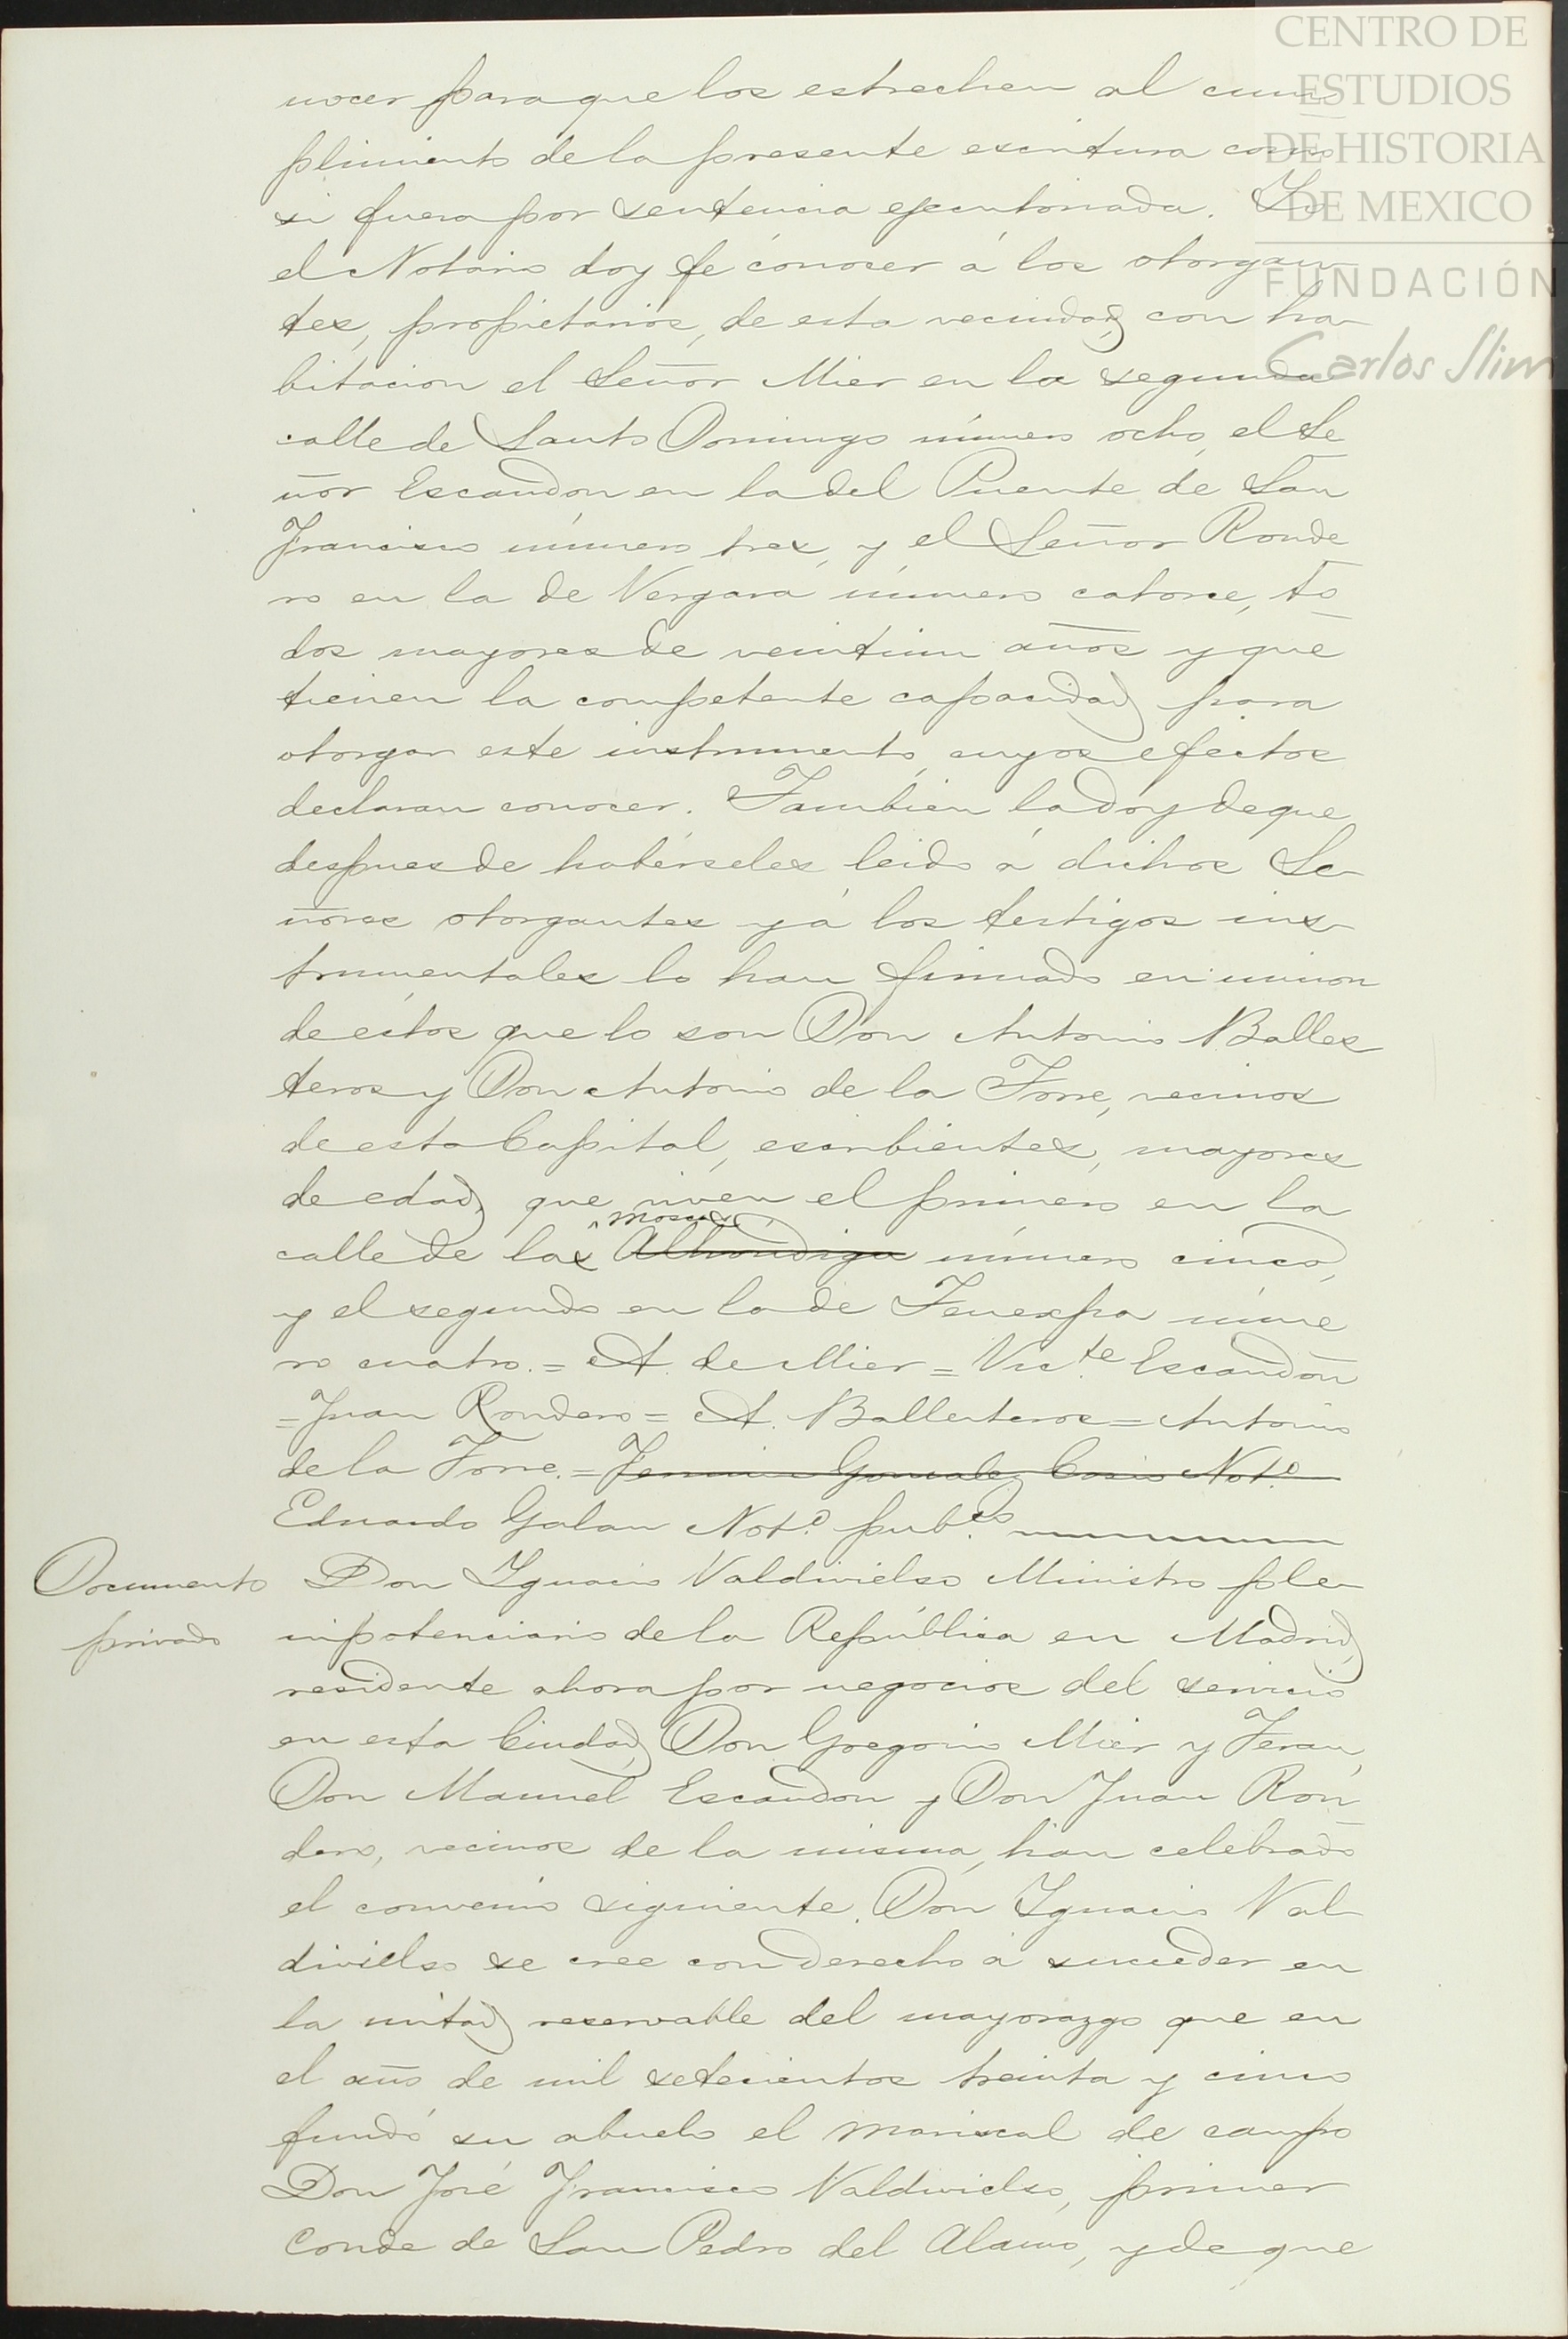 CENTRO DE
ESTUDIOS
DE HISTORIA
DE MEXICO
FUNDACIÓN
Carlos Slim
nocer para que los estrechen al cum
plimiento de la presente escritura como
si fuera por sentencia ejecutoriada. Yo
el Notario doy fe conocer á los otorgan
tes, propietarios, de esta vecindad, con ha-
bitacion el Señor Mier en la segunda
calle de Santo Domingo número ocho, el Se
ñor Escandon en la del Puente de San
Francisco número tres, y el Señor Ronde
ro en la de Vergara número catorce, to
dos mayores de veintiun años y que
tienen la competente capacidad para
otorgar este instrumento, cuyos efectos
declaran conocer. Tambien la doy de que
despues de habérseles leido á dichos Se-
ñores otorgantes y á los testigos ins-
trumentales lo han firmado en union
de estos que lo son Don Antonio Balles
teros y Don Antonio de la Torre, vecinos
de esta Capital, escribientes, mayores
de edad, que viven el primero en la
moscas
calle de las Alhondiga número cinco,
y el segundo en la de Tenexpa núme
ro cuatro.= A. de Mier = Vic.te Escandon
= Juan Rondero = A. Ballesteros = Antonio
de la Torre.= Fermin Gonzalez Cosio Not.o
Eduardo Galan Not.o pub.co
Documento
privado
Don Ignacio Valdivielso Ministro ple-
nipotenciario de la República en Madrid,
residente ahora por negocios del servicio
en esta Ciudad, Don Gregorio Mier y Teran,
Don Manuel Escandon y Don Juan Ron
dero, vecinos de la misma, han celebrado
el convenio siguiente. Don Ignacio Val-
divielso se cree con derecho á succeder en
la mitad reservable del mayorazgo que en
el año de mil setecientos treinta y cinco
fundó su abuelo el mariscal de campo
Don José Francisco Valdivielso, primer
Conde de San Pedro del Alamo, y de que